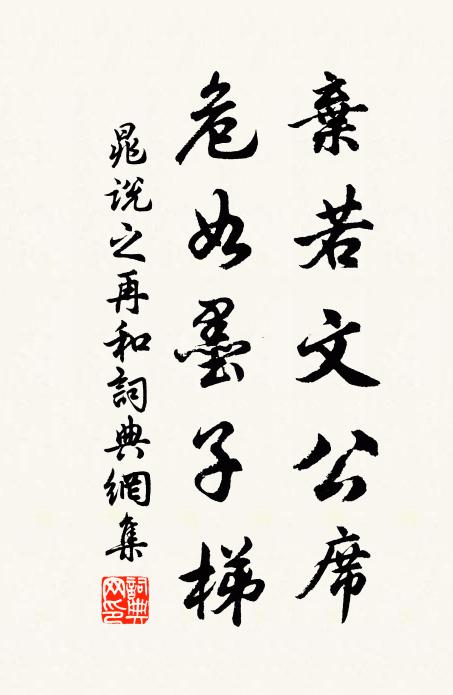 棄若文公席
危如墨子梯
晁说之再和詞典網集
詞典网印